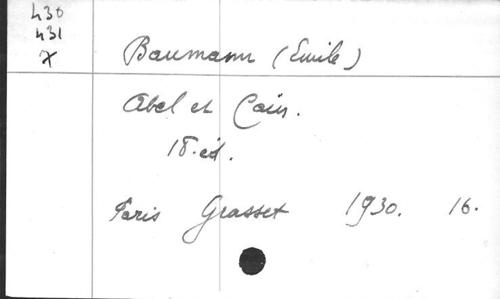 430
431
X
Baumann (Emile)
Abel et Caïn.
18.éd.
Paris Grasset 1930. 16.